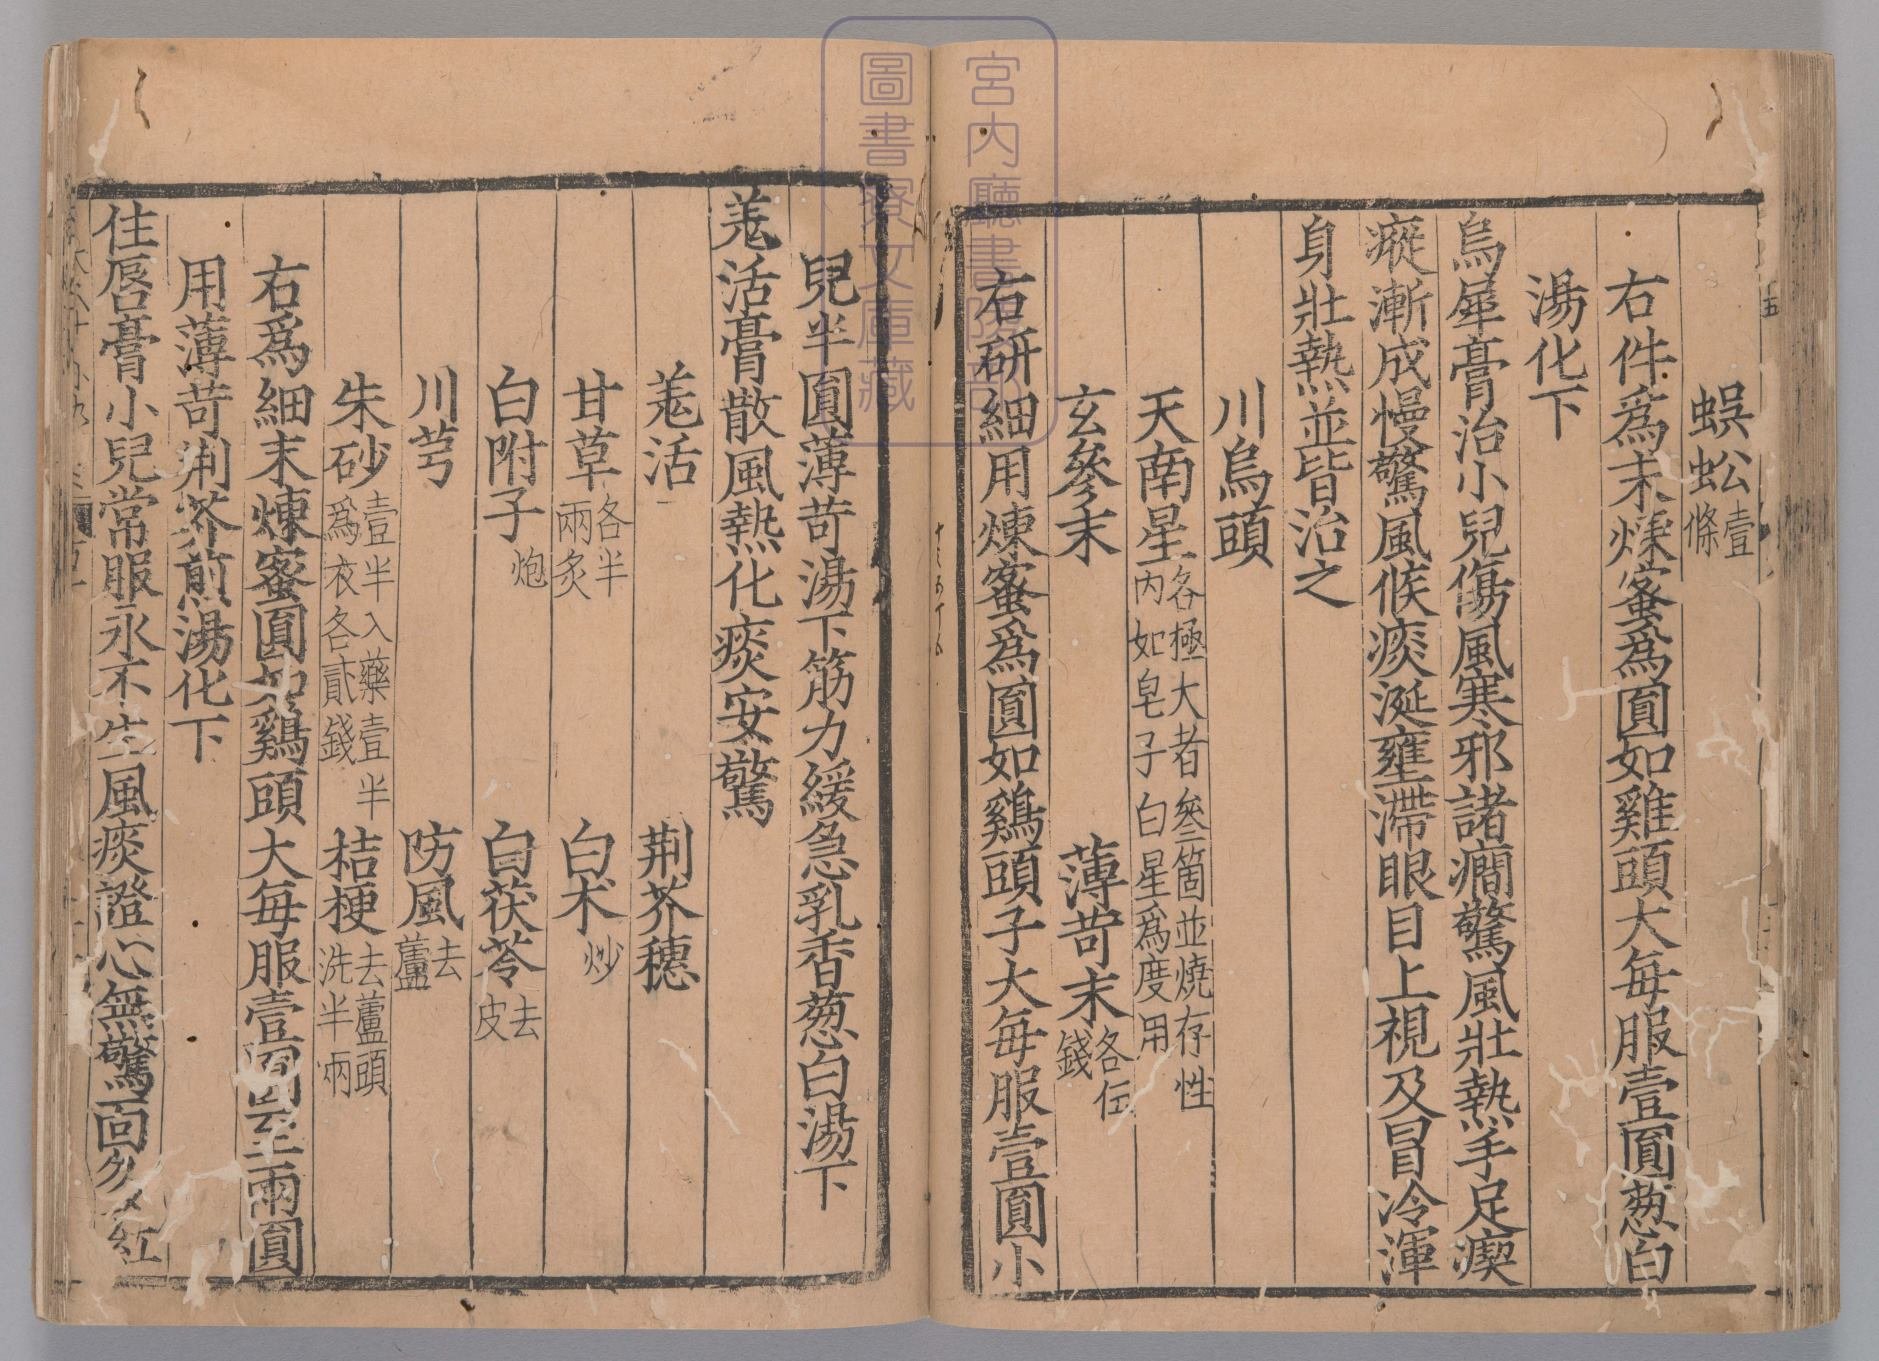 蜈蚣壹條
右件爲末煉蜜爲圓如雞頭大每服壹圓葱白
湯化下
烏犀膏治小兒傷風寒邪諸癇驚風壯熱手足瘈
瘲漸成慢驚風候痰涎壅滯眼目上視及冒冷渾
身壯熱並皆治之
川烏頭
天南星各極大者叄箇並燒存性內如皂子白星爲度用
玄參末 薄苛末各伍錢
右研細用煉蜜爲圓如鷄頭子大每服壹圓小
兒半圓薄苛湯下筋力緩急乳香葱白湯下
羗活膏散風熱化痰安驚
羗活 荆芥穗
甘草各半兩炙 白术炒
白附子炮 白茯苓去皮
川芎 防風去蘆
朱砂壹半入藥壹半爲衣各貳錢 桔梗去蘆頭洗半兩
右爲細末煉蜜圓如鷄頭大每服壹圓至兩圓
用薄苛荆芥煎湯化下
住唇膏小兒常服永不生風痰證心無驚面多紅
宮内廳書陵部
圖書寮文庫藏